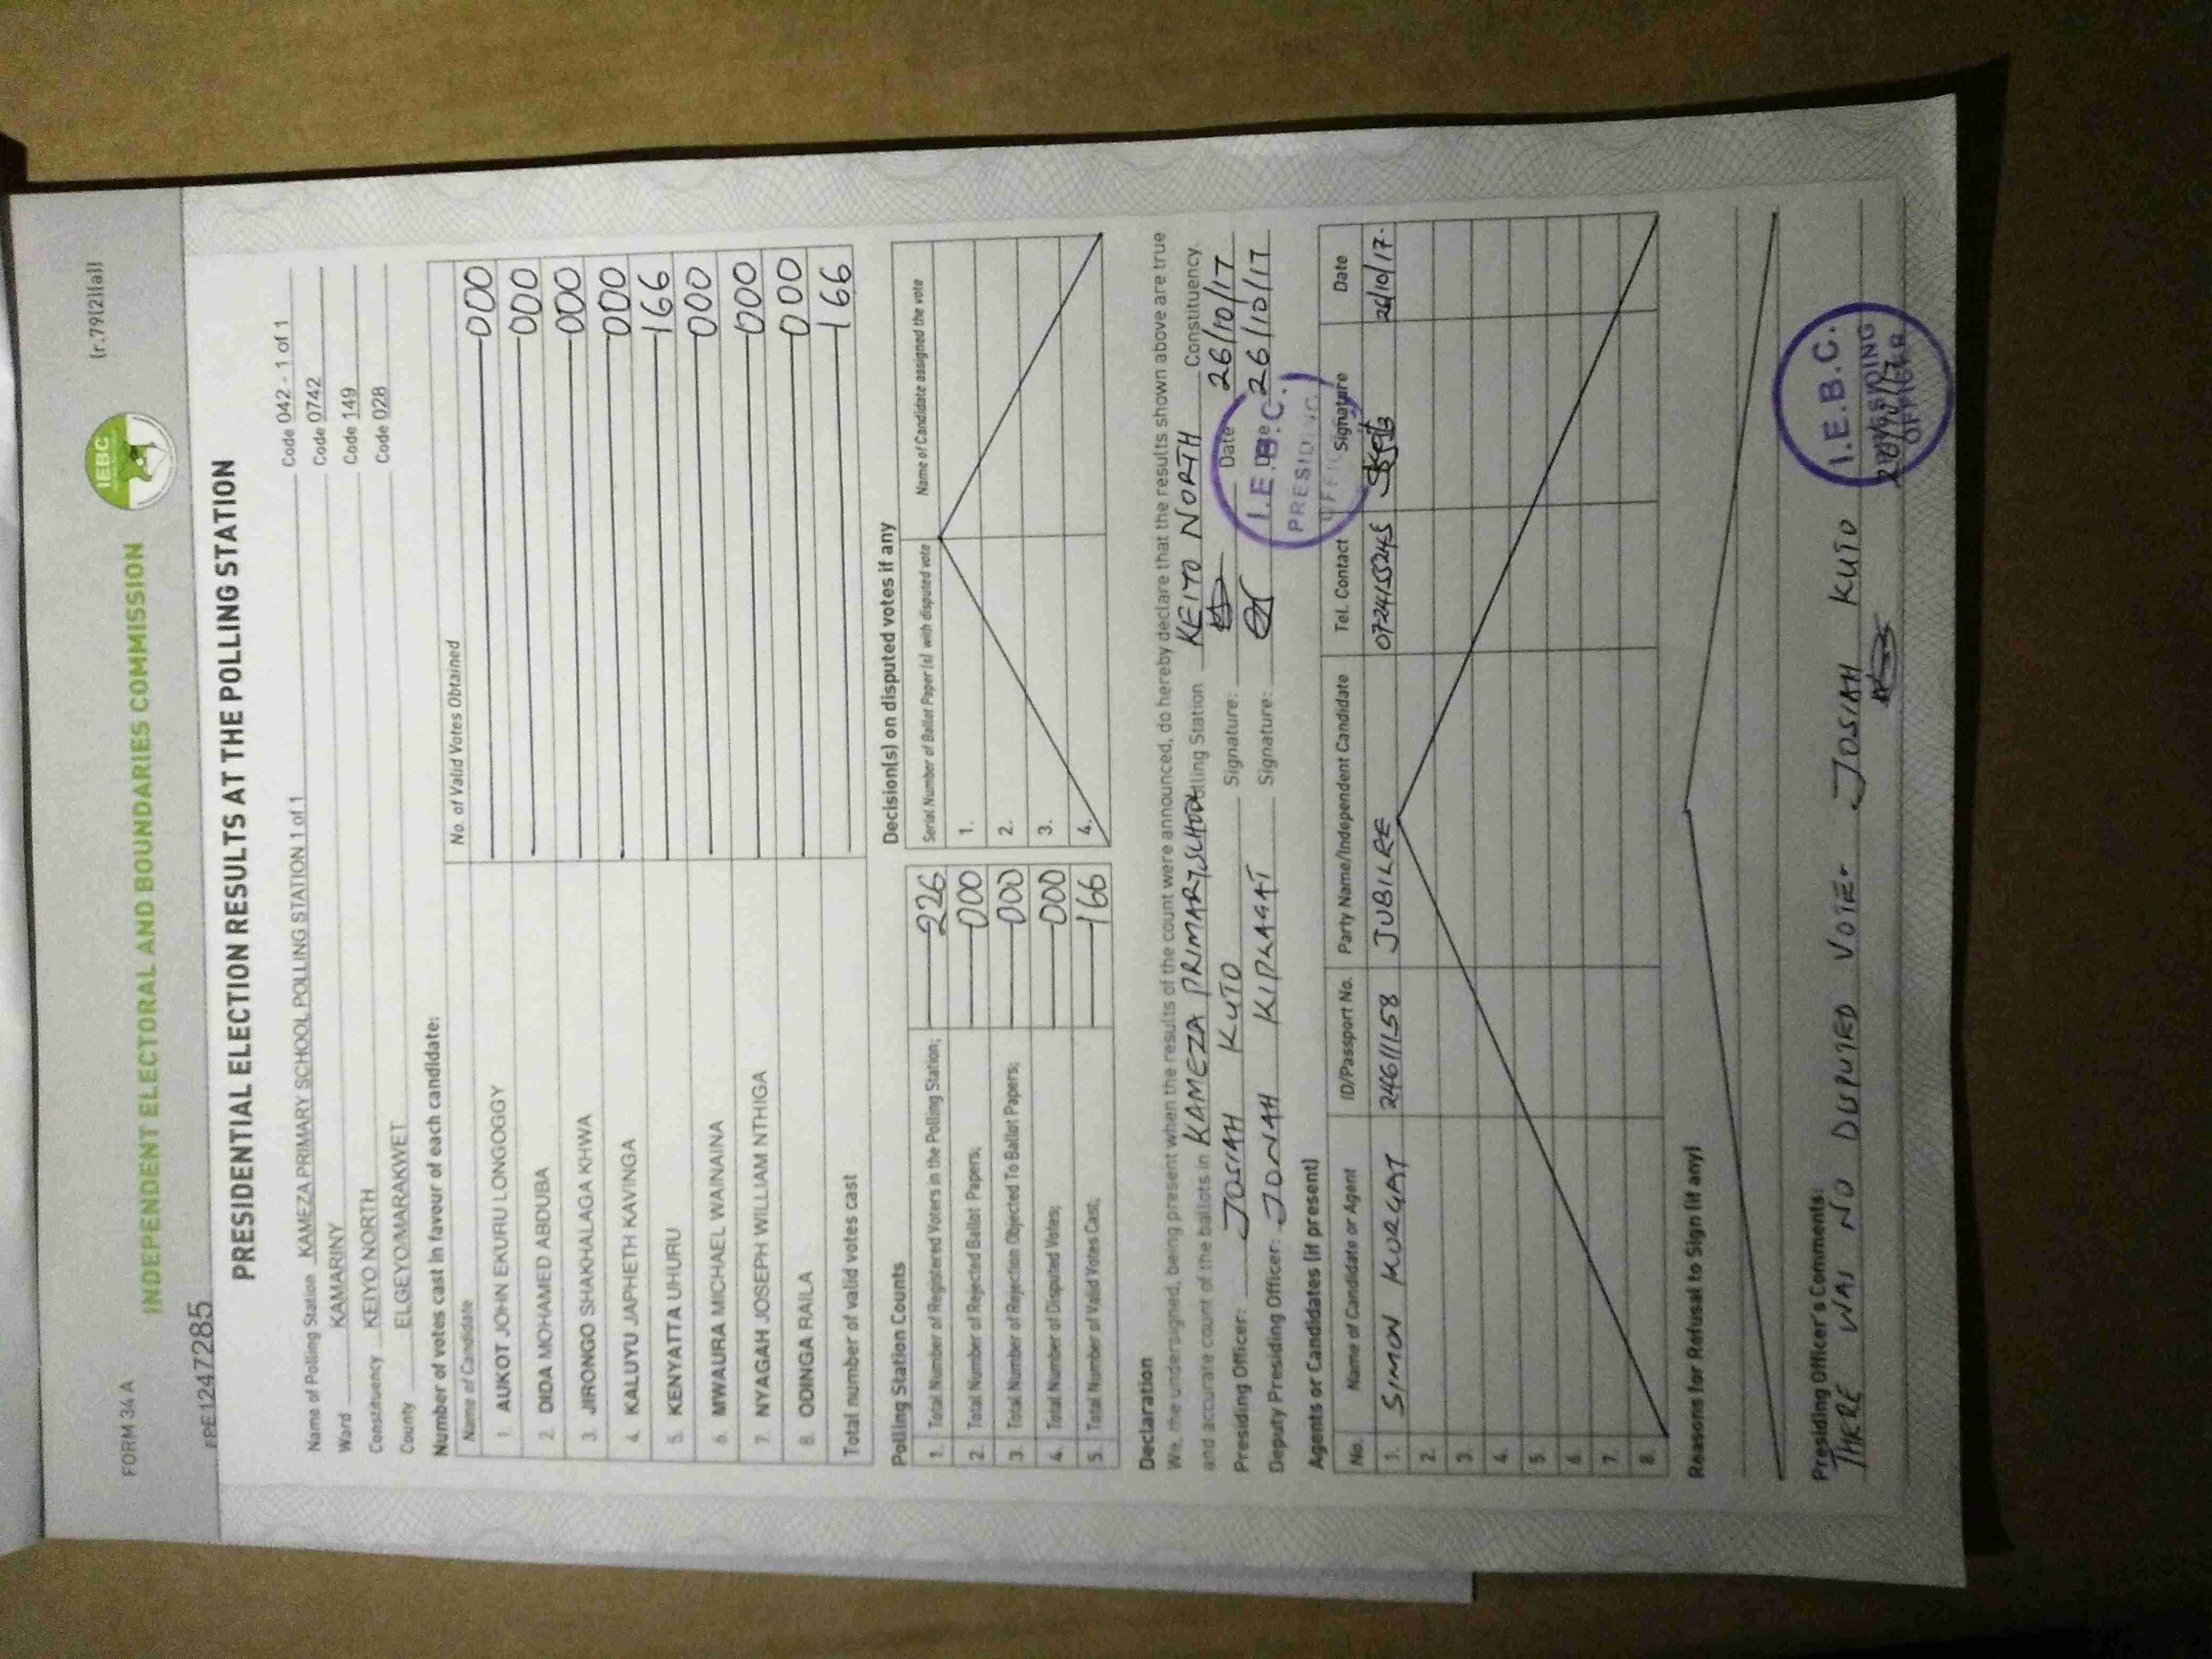 FORM 34 A
(r.79(2)(a))
INDEPENDENT ELECTORAL AND BOUNDARIES COMMISSION
IEBC
PRESIDENTIAL ELECTION RESULTS AT THE POLLING STATION
Name of Polling Station KAMEZA PRIMARY SCHOOL POLLING STATION 1 of 1 Code 042 - 1 of 1
Ward KAMARINY Code 0742
Constituency KEIYO NORTH Code 149
County ELGEYO/MARAKWET Code 028
Number of votes cast in favour of each candidate:
Name of Candidate No. of Valid Votes Obtained
1. AUKOT JOHN EKURU LONGOGGY 000
2. DIDA MOHAMED ABDUBA 000
3. JIRONGO SHAKHALAGA KHWA 000
4. KALUYU JAPHETH KAVINGA 000
5. KENYATTA UHURU 166
6. MWAURA MICHAEL WAINAINA 000
7. NYAGAH JOSEPH WILLIAM NTHIGA 000
8. ODINGA RAILA 000
Total number of valid votes cast 166
Polling Station Counts
1. Total Number of Registered Voters in the Polling Station; 226
2. Total Number of Rejected Ballot Papers; 000
3. Total Number of Rejection Objected To Ballot Papers; 000
4. Total Number of Disputed Votes; 000
5. Total Number of Valid Votes Cast; 166
Decision(s) on disputed votes if any
Serial Number of Ballot Paper (s) with disputed vote Name of Candidate assigned the vote
1.
2.
3.
4.
Declaration
We, the undersigned, being present when the results of the count were announced, do hereby declare that the results shown above are true
and accurate count of the ballots in KAMEZA PRIMARY SCHOOL Polling Station KEITO NORTH Constituency.
Presiding Officer: JOSIAH KUTO Signature: Date 26/10/17
Deputy Presiding Officer: JONAH KIPLAGAT Signature: Date 26/10/17
I.E.B.C.
PRESIDING
Agents or Candidates (if present)
No. Name of Candidate or Agent ID/Passport No. Party Name/Independent Candidate Tel. Contact Signature Date
1. SIMON KORGAT 24611158 JUBILEE 26/10/17.
2.
3.
4.
5.
6.
7.
8.
Reasons for Refusal to Sign (if any)
Presiding Officer's Comments:
THERE WAS NO DUPUTED VOTE. JOSIAH KUTO
I.E.B.C.
PRESIDING
OFFICER